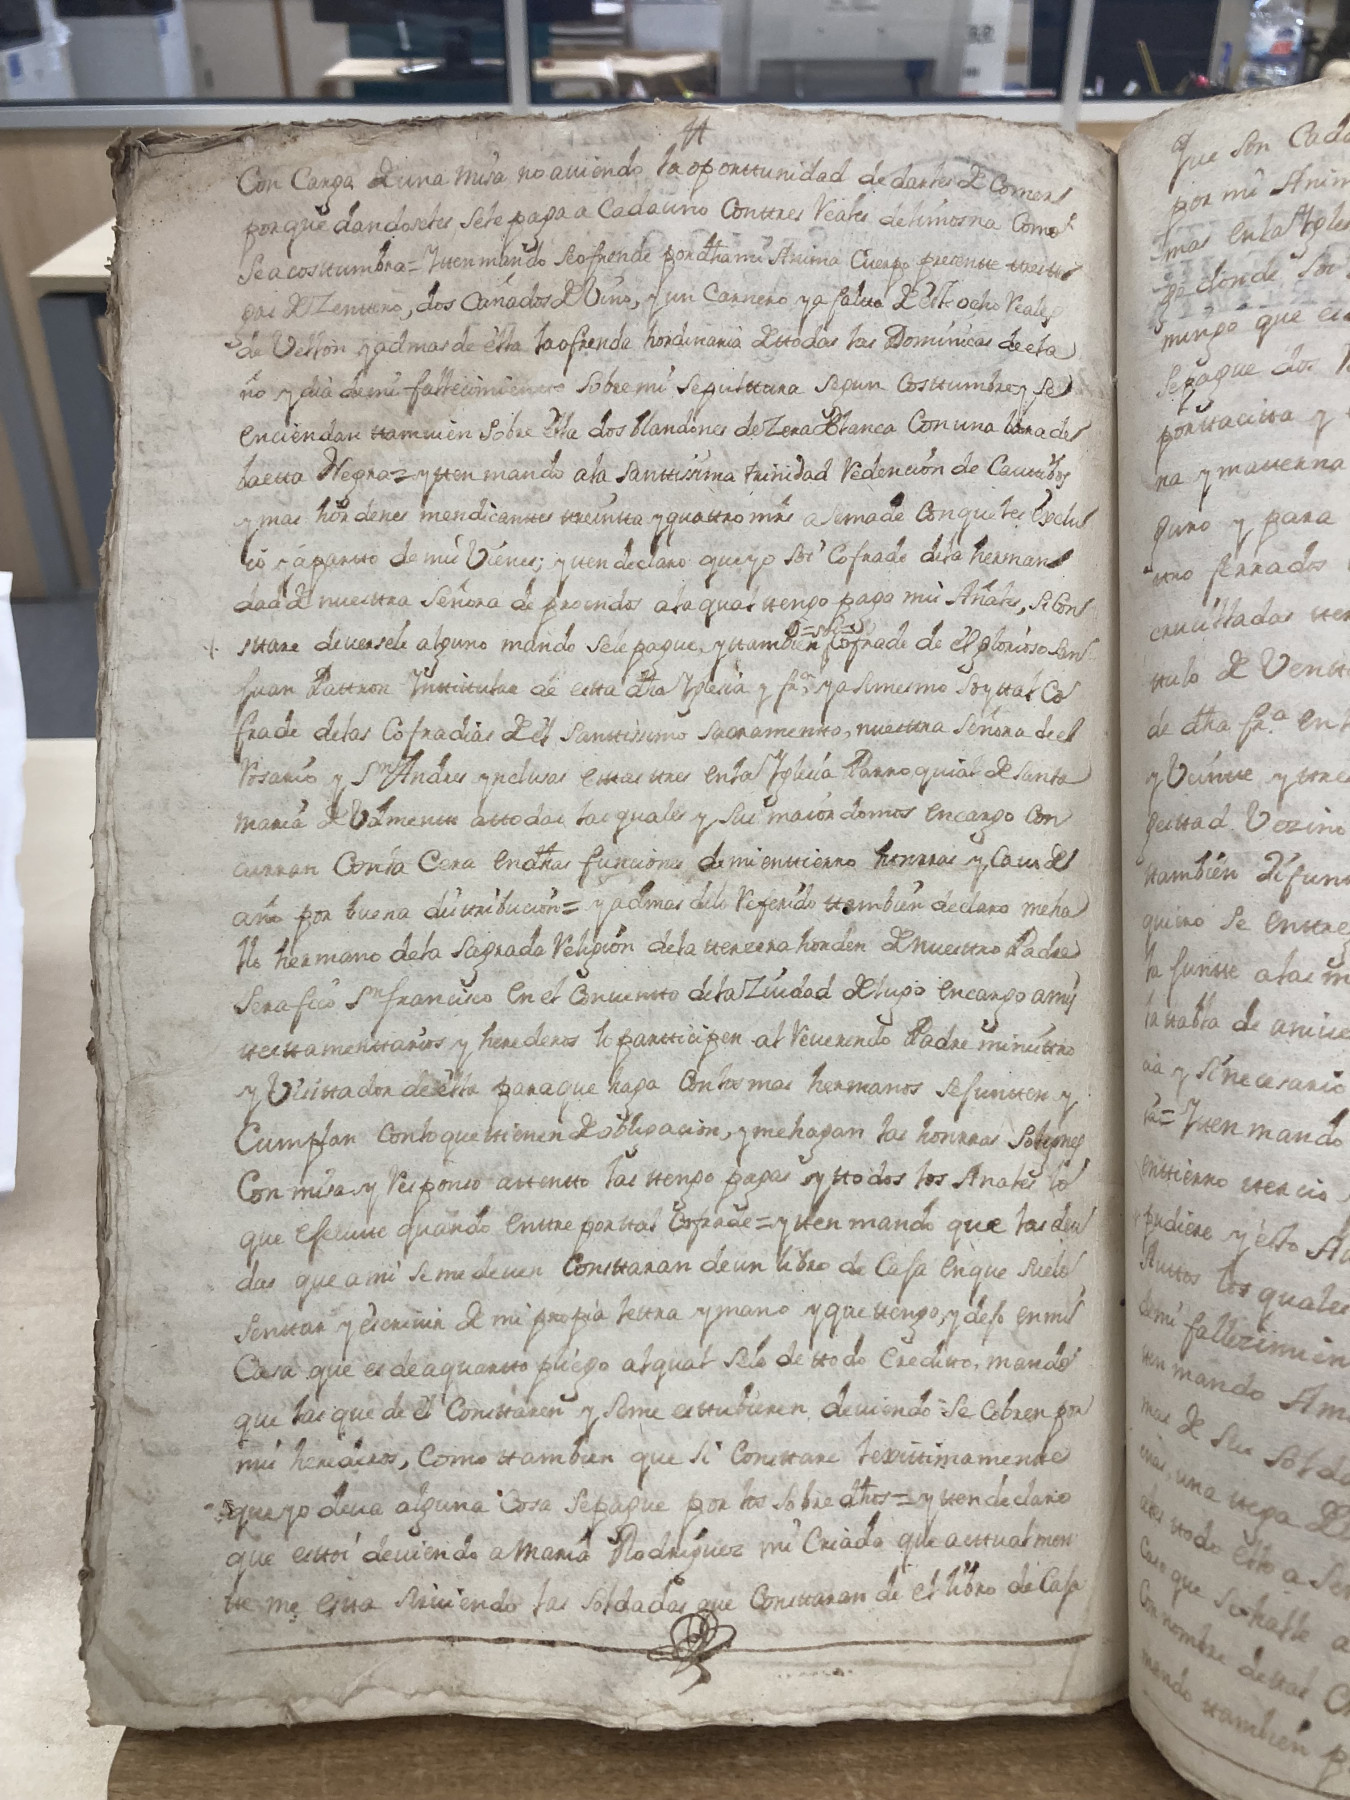 Con Carga de una misa no aviendo la oporttunidad de darles de Comer
porque dandoseles, sele paga a Cada uno Conttres Reales de limosna Como
se acosttumbra= Ytten mando se ofrende por dha mi Anima Cuerpo presentte ttres tte
gas de Zentteno, dos Cañados de Vino, y un Carnero y a faltta de estte ocho Reales
de Vellon y ademas de estta la ofrenda hordinaria de ttodas las Dominicas de el a
ño y dia de mi fallecimientto sobre mi sepulttura segun Costtumbre y se
enciendan ttamvien sobre ella dos blandones de Zera Blanca Con una bara de
baetta Negra= ytten mando a la santtissima trinidad Redencion de Cauttibos
y mas hordenes mendicanttes ttreintta y quattro mrs a semade Conqueles Exclu
io y apartto de mis Vienes; ytten declaro que yo soi Cofrade de la herman
dad de nuesttra Señora de proendos a la qual ttengo pago mis Anales, si Cons
ttare deversele alguno mando sele pague, y ttambien Cofrade de el glorioso San
Juan Pattron Ynttitular de estta dha Yglesia y fra. y asimesmo soy ttal Co
frade de las Cofradias de el santtissimo sacramentto, nuesttra señora de el
Rosario y Sn Andres ynclusas esttas ttres en la Yglesia Parroquial de Santa
Maria de Vilmentte a ttodas las quales y sus maiordomos encargo Con
curran Con la Cera en dhas funciones de mi enttierro honrras y Cavo de
año por buena disttribucion= y ademas de lo Referido ttambien declaro me ha
llo hermano de la Sagrada Religion de la ttercera horden de Nuesttro Padre
Serafico Sn francisco en el Conventto de la Ziudad de lugo encargo a mis
ttesttamenttarios y herederos lo partticipen al Reverendo Padre ministtro
y Visittador de ella para que haga Con los mas hermanos se juntten y
Cumplan Con lo que ttienen de obligacion, y me hagan las honrras Solegnes
Con misa y Responso attentto las ttengo pagas y ttodos los Anales lo
que efecutte quando enttre por ttal Cofrade= ytten mando que las deu
das que a mi se me deven Consttaran de un libro de Casa en que suelo
senttar y escrivir de mi propia lettra y mano y que ttengo, y dejo en mi
Casa que es de aquartto pliego al qual sele de ttodo Creditto, mando
que las que de el Consttaren y seme esttubieren deviendo se Cobren por
mis herederos, Como ttambien que si Consttare lexittimamentte
que yo deva alguna Cosa se pague por los sobre dhos= ytten declaro
que esttoi deviendo a Maria Rodriguez mi Criada que acttualmen
tte me estta sirviendo las Soldadas que Consttaran de el libro de Casa
que son Cada
por mi Anim
mas en la Yglesi
de donde soi
mingo que es
Se pague dos
porttacitta y
na y matterna
guro y para
ttro ferrados
crucilladas tter
ttulo de Ventt
de dha fra. en
y Veintte y ttre
gesttad. Vezino
ttambien difun
quiro se enttreg
la juntte a las m
la ttabla de anive
aa y si necesario
ra= Ytten mando
enttierro ttercio
pudiere y esto
Anttos los quales
de mi fallezimien
tten mando Ama
mas de sus solda
mas, una ttega de
ales ttodo esto a
Caso que se halle a
Con nombre de ttal Cr
mando ttambien p